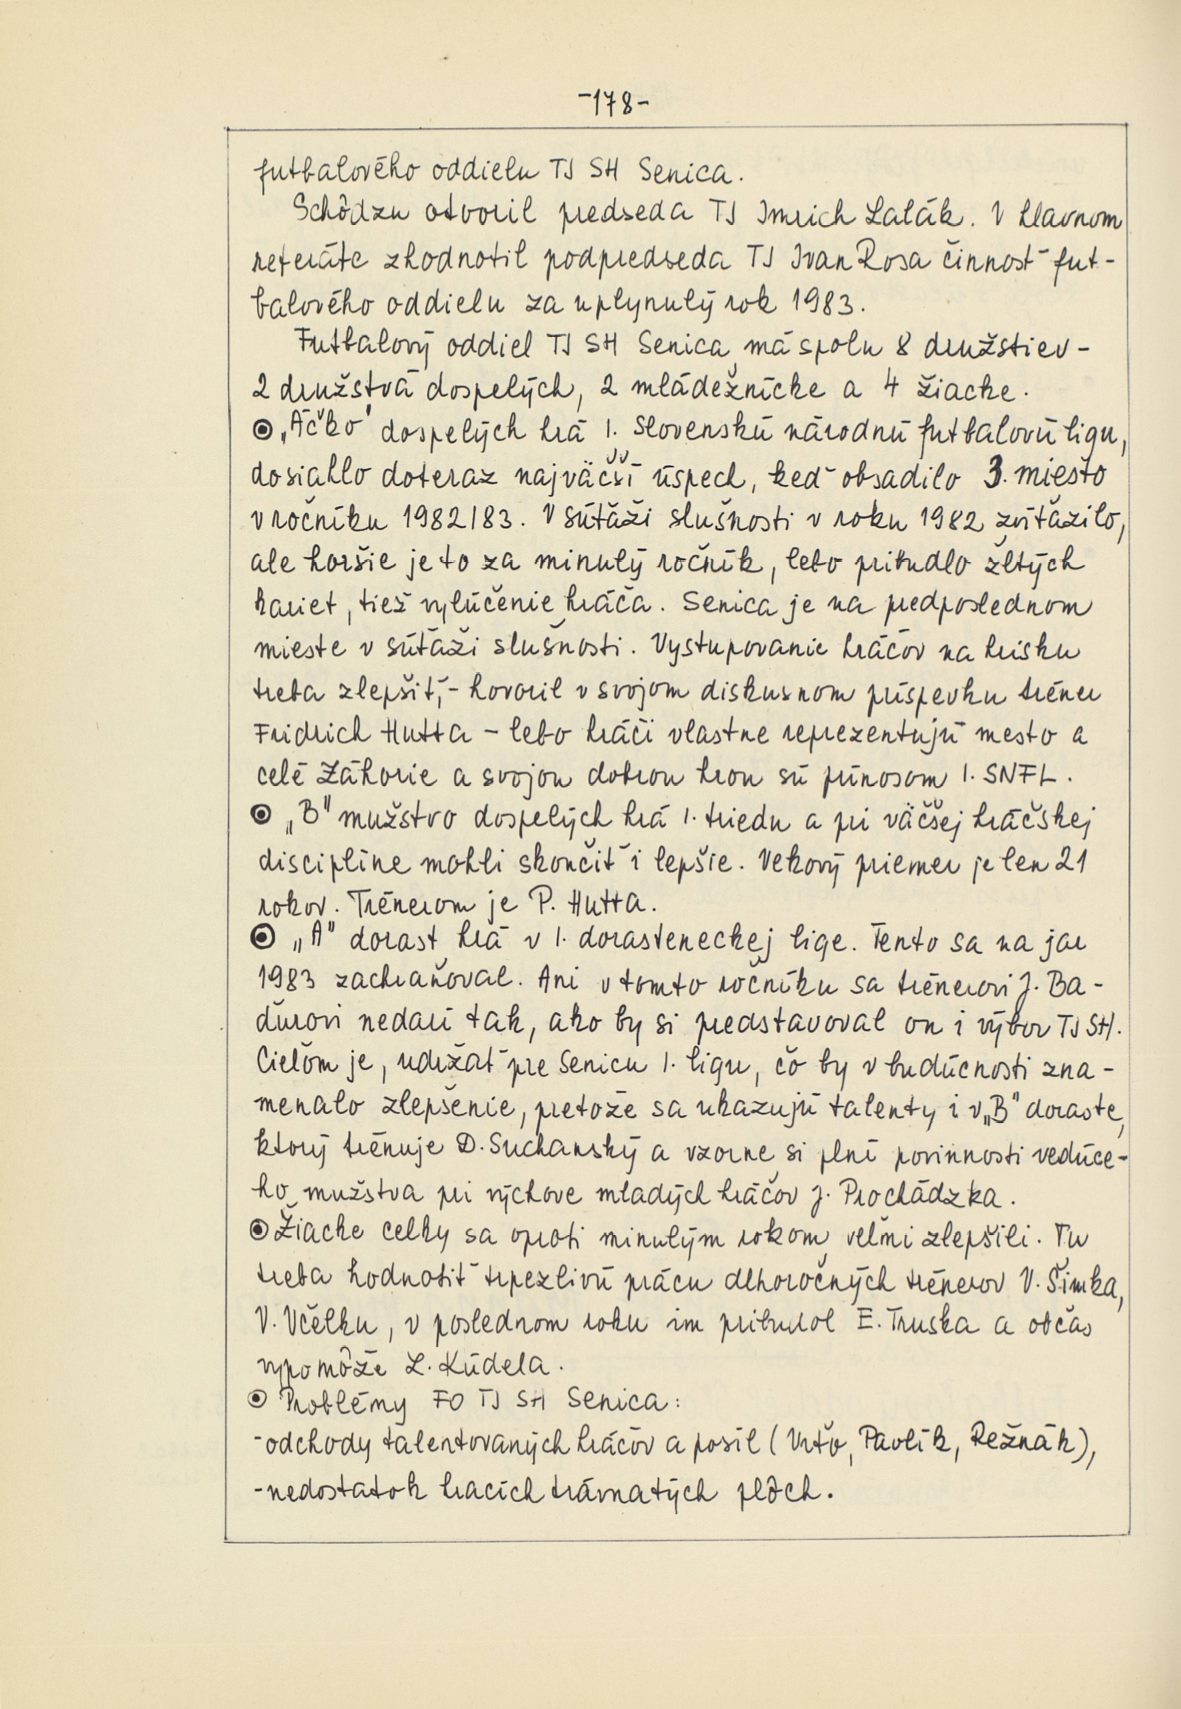 -178-
futbalového oddielu TJ SH Senica.
Schôdzu otvoril predseda TJ Imrich Lalák. V hlavnom
referáte zhodnotil podpredseda TJ Ivan Rosa činnosť fut-
balového oddielu za uplynulý rok 1983.
Futbalový oddiel TJ SH Senica má spolu 8 družstiev -
2 družstvá dospelých, 2 mládežnícke a 4 žiacke.
⦿ „Áčko" dospelých hrá I. Slovenskú národnú futbalovú ligu,
dosiahlo doteraz najväčší úspech, keď obsadilo 3. miesto
v ročníku 1982/83. V súťaži slušnosti v roku 1982 zvíťazilo,
ale horšie je to za minulý ročník, lebo pribudlo žltých
kariet, tiež vylúčenie hráča. Senica je na predposlednom
mieste v súťaži slušnosti. Vystupovanie hráčov na ihrisku
treba zlepšiť, - hovoril v svojom diskusnom príspevku tréner
Fridrich Hutta - lebo hráči vlastne reprezentujú mesto a
celé Záhorie a svojou dobrou hrou sú prínosom I. SNFL.
⦿ „B" mužstvo dospelých hrá I. triedu a pri väčšej hráčskej
disciplíne mohli skončiť i lepšie. Vekový priemer je len 21
rokov. Trénerom je P. Hutta.
⦿ „A" dorast hrá v I. dorasteneckej lige. Tento sa na jar
1983 zachraňoval. Ani v tomto ročníku sa trénerovi J. Ba-
ďurovi nedarí tak, ako by si predstavoval on i výbor TJ SH.
Cieľom je, udržať pre Senicu I. ligu, čo by v budúcnosti zna-
menalo zlepšenie, pretože sa ukazujú talenty i v „B" doraste,
ktorý trénuje D. Suchanský a vzorne si plní povinnosti vedúce-
ho mužstva pri výchove mladých hráčov J. Prochádzka.
⦿ Žiacke celky sa oproti minulým rokom veľmi zlepšili. Tu
treba hodnotiť trpezlivú prácu dlhoročných trénerov V. Šimka,
V. Včelku, v poslednom roku im pribudol E. Truska a občas
vypomôže L. Kúdela.
⦿ Problémy FO TJ SH Senica:
-odchody talentovaných hráčov a posíl (Vrťo, Pavlík, Režnák),
-nedostatok hracích trávnatých plôch.